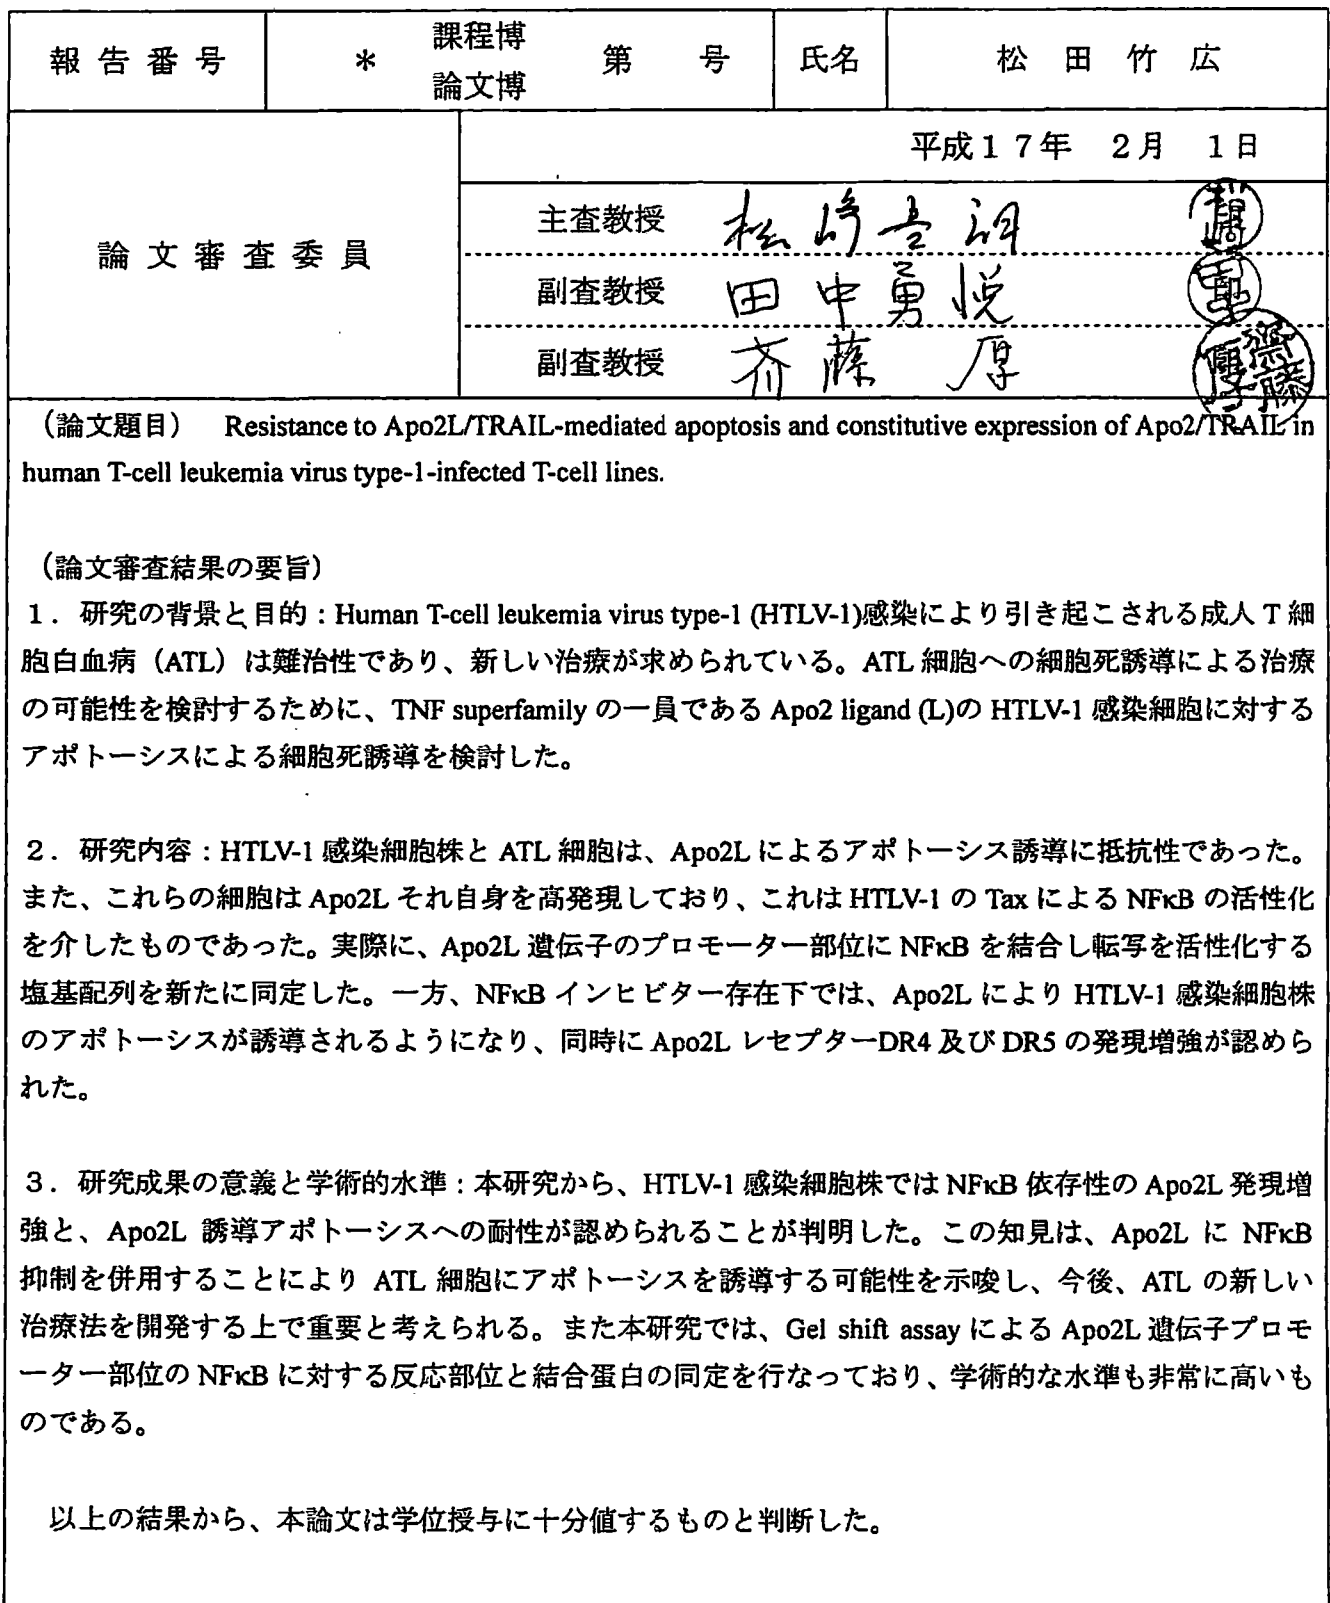 報告番号 * 課程博 論文博 第 号 氏名 松田竹広
平成17年 2月 1日
論文審査委員
主査教授 松崎吾朗
副査教授 田中勇悦
副査教授 斉藤 厚
(論文題目) Resistance to Apo2L/TRAIL-mediated apoptosis and constitutive expression of Apo2/TRAIL in
human T-cell leukemia virus type-1-infected T-cell lines.
(論文審査結果の要旨)
1. 研究の背景と目的:Human T-cell leukemia virus type-1 (HTLV-1)感染により引き起こされる成人T細
胞白血病(ATL)は難治性であり、新しい治療が求められている。ATL細胞への細胞死誘導による治療
の可能性を検討するために、TNF superfamilyの一員であるApo2 ligand (L)のHTLV-1感染細胞に対する
アポトーシスによる細胞死誘導を検討した。
2. 研究内容:HTLV-1感染細胞株とATL細胞は、Apo2Lによるアポトーシス誘導に抵抗性であった。
また、これらの細胞はApo2Lそれ自身を高発現しており、これはHTLV-1のTaxによるNFκBの活性化
を介したものであった。実際に、Apo2L遺伝子のプロモーター部位にNFκBを結合し転写を活性化する
塩基配列を新たに同定した。一方、NFκBインヒビター存在下では、Apo2LによりHTLV-1感染細胞株
のアポトーシスが誘導されるようになり、同時にApo2LレセプターDR4及びDR5の発現増強が認めら
れた。
3. 研究成果の意義と学術的水準:本研究から、HTLV-1感染細胞株ではNFκB依存性のApo2L発現増
強と、Apo2L誘導アポトーシスへの耐性が認められることが判明した。この知見は、Apo2LにNFκB
抑制を併用することによりATL細胞にアポトーシスを誘導する可能性を示唆し、今後、ATLの新しい
治療法を開発する上で重要と考えられる。また本研究では、Gel shift assayによるApo2L遺伝子プロモ
ーター部位のNFκBに対する反応部位と結合蛋白の同定を行なっており、学術的な水準も非常に高いも
のである。
以上の結果から、本論文は学位授与に十分値するものと判断した。